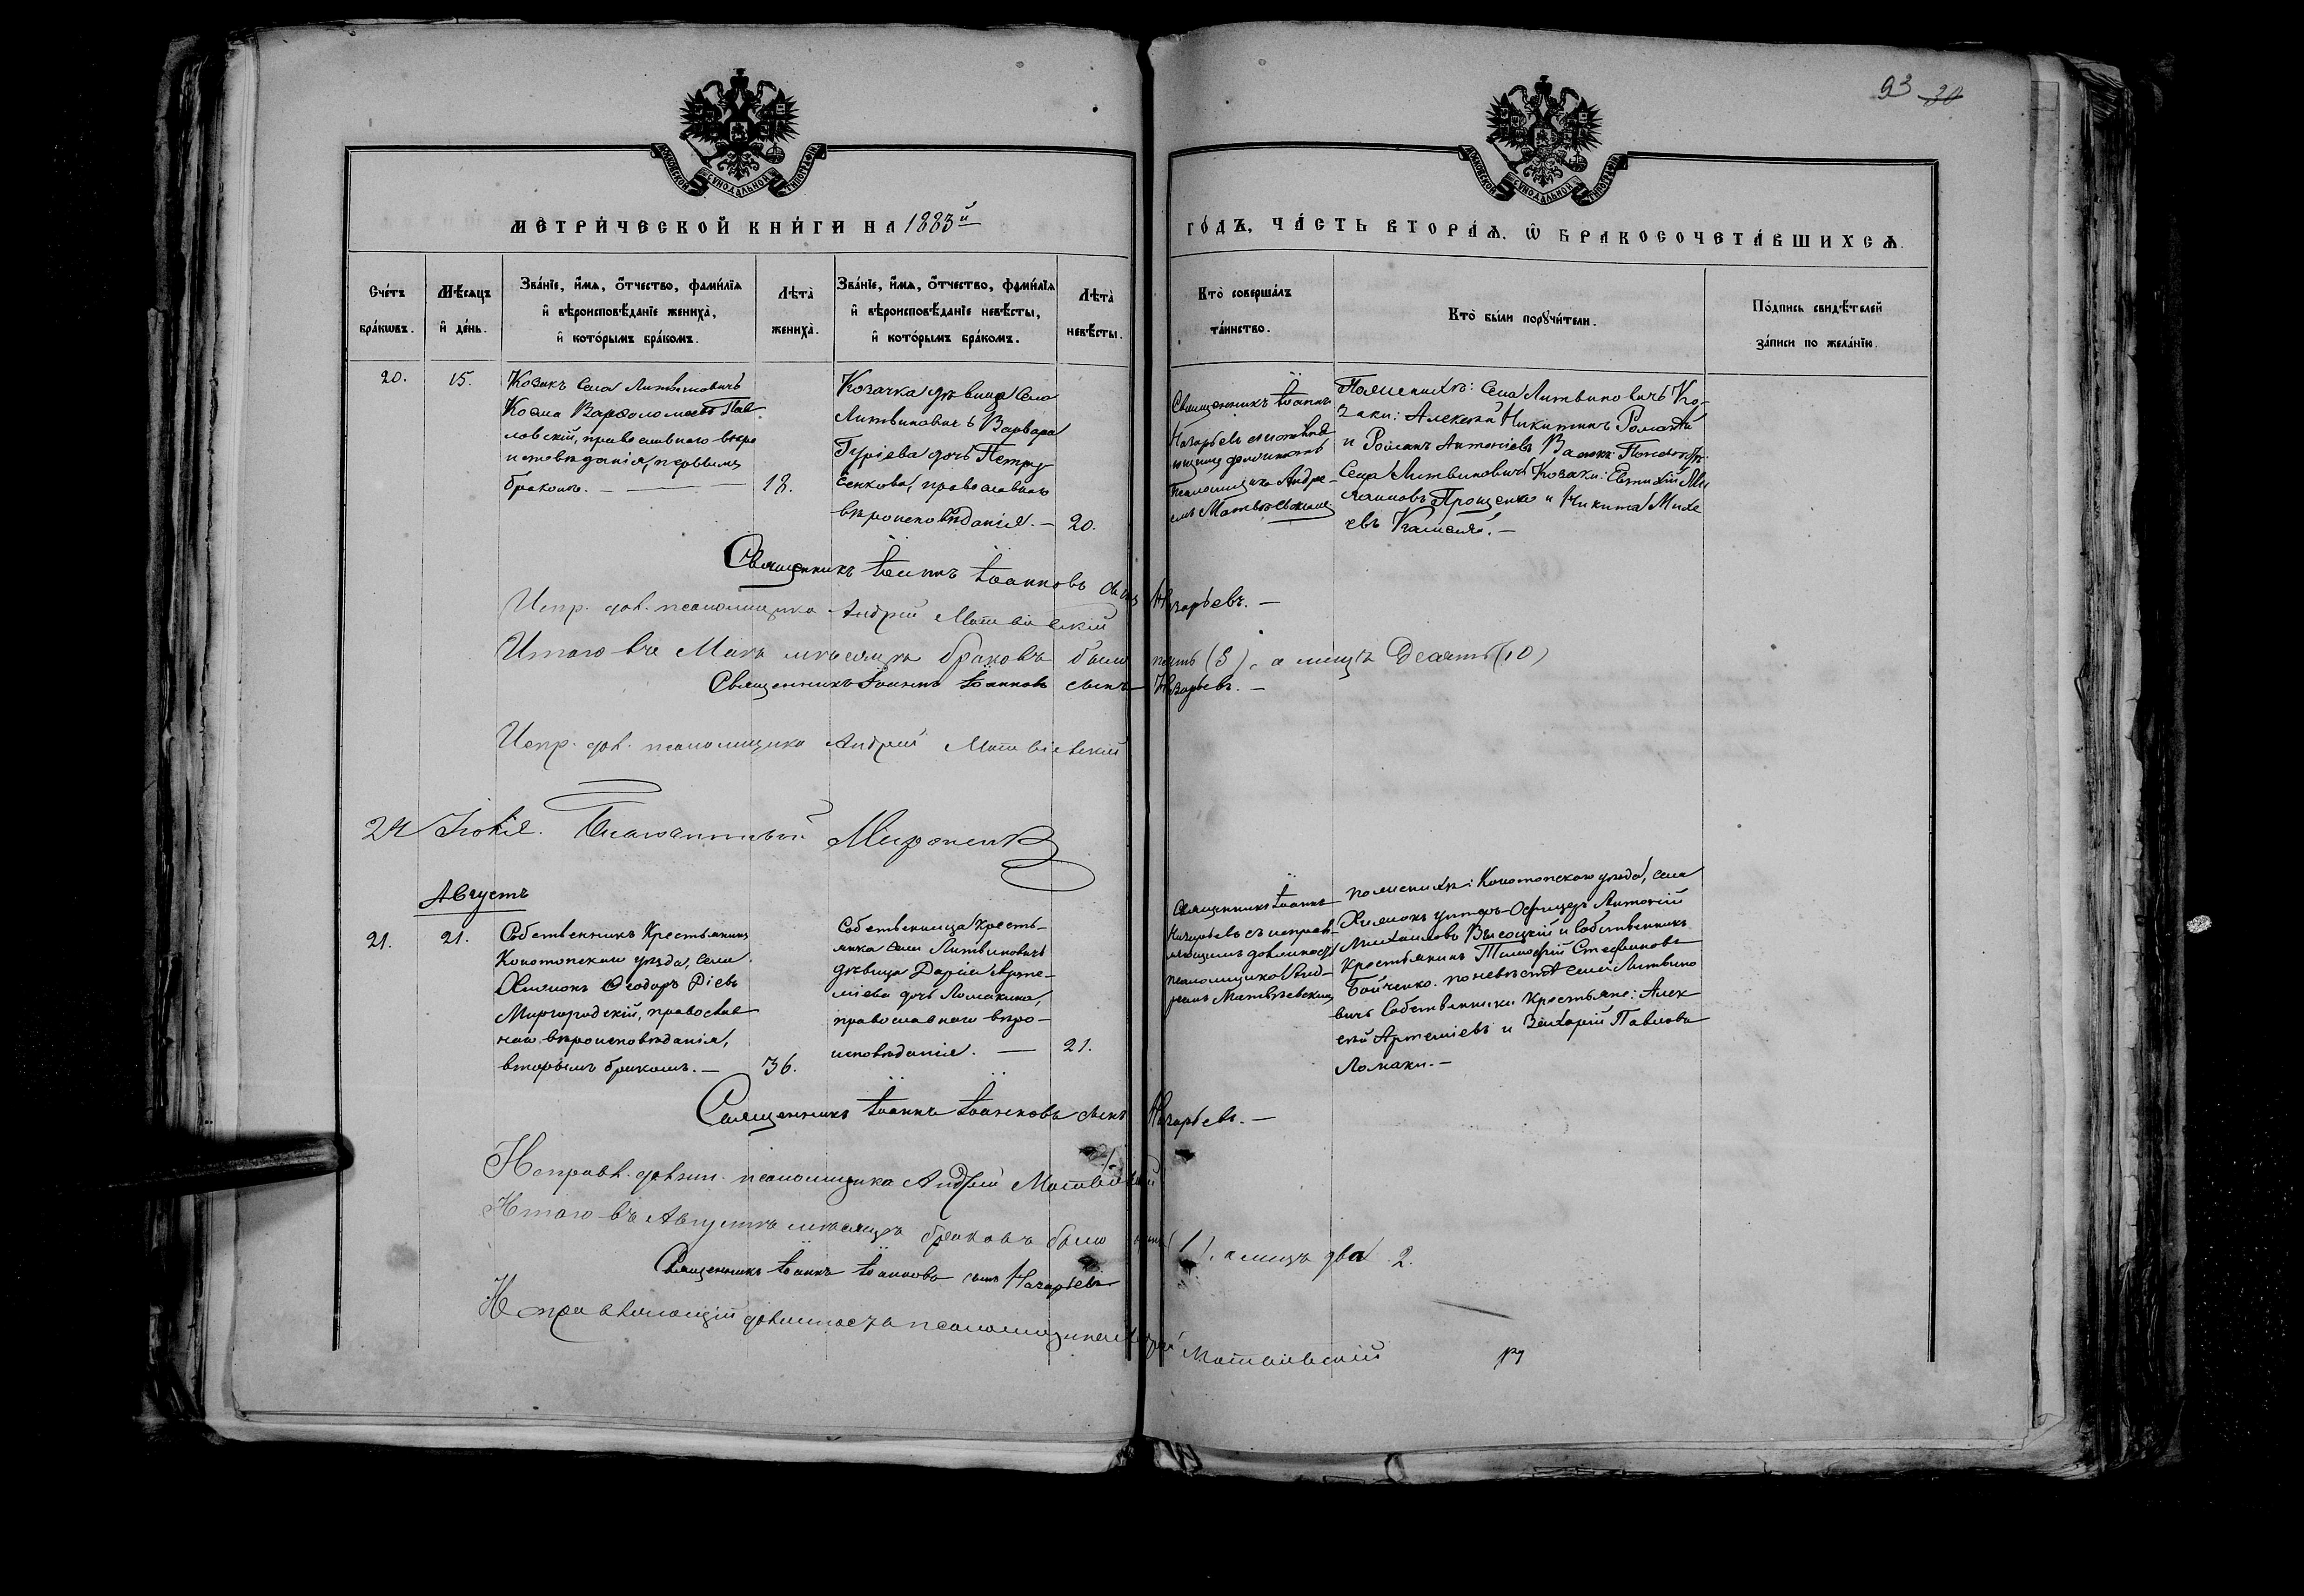 93 30
МОСКОВСКОЙ СУНОДАЛЬНОЙ ТИПОГРАФІИ
МОСКОВСКОЙ СУНОДАЛЬНОЙ ТИПОГРАФІИ
МЕТРИ́ЧЕСКОЙ КНИ́ГИ НА 1883й
ГО́ДЪ, ЧА́СТЬ ВТОРА́Ѧ, Ѡ БРАКОСОЧЕТА́ВШИХСѦ.
Сче́тъ бра́кѡвъ.
Мѣ́сѧцъ и҆ де́нь.
Зва́нїе, и҆́мѧ, ѻ҆́тчество, фами́лїѧ и҆ вѣроисповѣ́данїе жениха̀, и҆ кото́рымъ бра́комъ.
Лѣта̀ жениха̀.
Зва́нїе, и҆́мѧ, ѻ҆́тчество, фами́лїѧ и҆ вѣроисповѣ́данїе невѣ́сты, и҆ кото́рымъ бра́комъ.
Лѣта̀ невѣ́сты.
Кто̀ соверша́лъ та́инство.
Кто̀ бы́ли порꙋчи́тели.
По́дпись свидѣ́телей за́писи по жела́нїю.
20.
15.
Козакъ села Литвиновичъ
Косма Варѳоломеевъ Пав
ловскій, православнаго вѣро
исповѣданія, первымъ
бракомъ. —
18.
Козачка дѣвица села
Литвиновичъ Варвара
Гуріева дочь Петру
сенкова, православнаго
вѣроисповѣданія. —
20.
Священникъ Іоаннъ
Назарьевъ
должность
Псаломщика Андре-
емъ Матвѣевскимъ
По женихѣ: села Литвиновичъ Ко-
заки: Алексѣй Никитинъ
и Романъ Антоніевъ
Села Литвиновичъ Козаки:
Прощенко и Никита Михе
евъ
Священникъ Іоаннъ Іоанновъ сынъ Назарьевъ. —
Испр. дол. псаломщика Андрей Матвіевскій
Итого въ Маѣ мѣсяцѣ браковъ было пять (5), а лицъ десять (10)
Священникъ Іоаннъ Іоанновъ сынъ Назарьевъ. —
Испр. дол. псаломщика Андрей Матвіевскій
24 Іюня. Благочинный Мироненко
Августъ
21.
21.
Собственникъ Крестьянинъ
Конотопскаго уѣзда, села
Хижокъ Ѳеодоръ
Миргородскій, православ
наго вѣроисповѣданія,
вторымъ бракомъ. —
36.
Собственница кресть-
янка села Литвиновичъ
дѣвица Дарія Арте-
міева дочь Ломакина,
православнаго вѣро-
исповѣданія. —
21.
Священникъ Іоаннъ
Назарьевъ съ исправ-
ляющимъ должность
псаломщика Анд-
реемъ Матвѣевскимъ
По женихѣ: Конотопскаго уѣзда, села
Хижокъ унтеръ-Офицеръ Антоній
Михаиловъ Высоцкій и Собственникъ
Крестьянинъ Тимофей Стефановъ
Бойченко. По невѣстѣ села Литвино
вичъ Собственники Крестьяне: Алек
сѣй Артеміевъ и Захарій Павловъ
Ломаки. —
Священникъ Іоаннъ Іоанновъ сынъ Назарьевъ. —
Исправл. должн. псаломщика Андрей Матвіевскій
Итого въ Августѣ мѣсяцѣ браковъ было (1), а лицъ два 2.
Священникъ Іоаннъ Іоанновъ сынъ Назарьевъ
Исправляющій должность псаломщика Андрей Матвіевскій